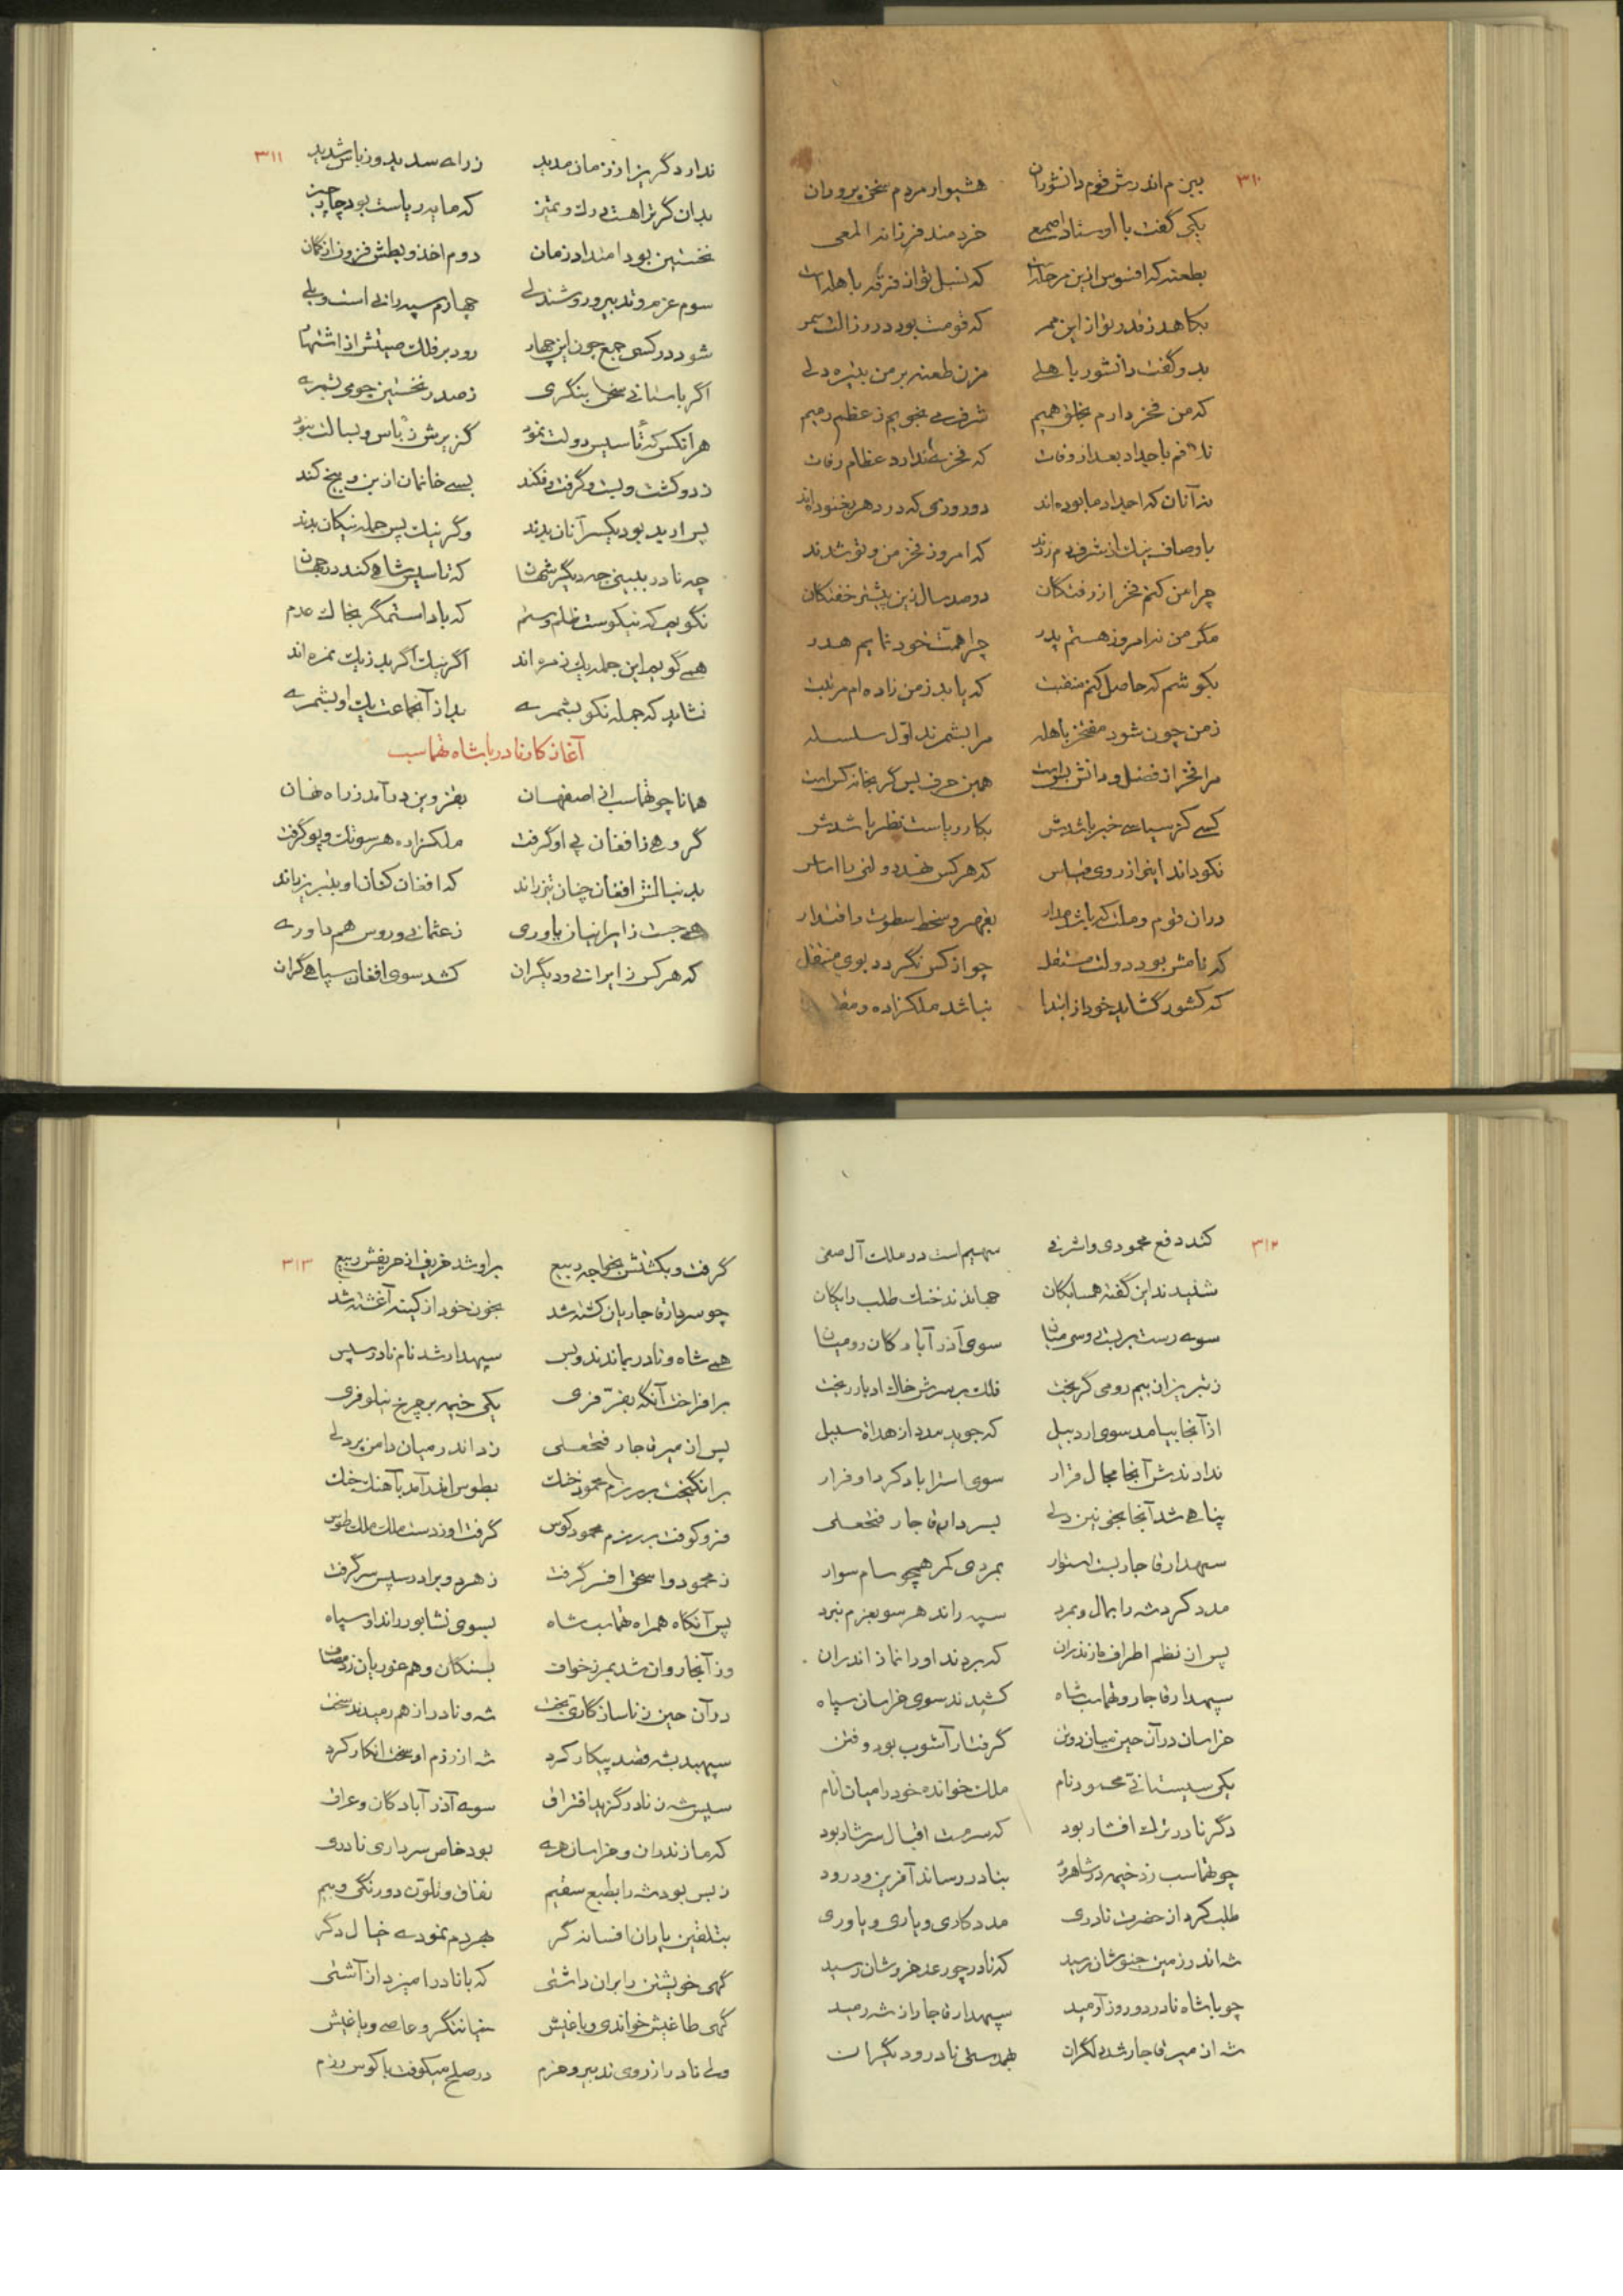 ۳۱۰
ببزم اندرش قوم دانشوران هشیوار مردم سخن پروران
یکی گفت با اوستاد اصمعی خردمند فرزانه المعی
بطعنه که افسوس ازین مرحله است که نسل تو از فرقه باهله است
بکاهد ز قدر تو از این ممر که قومت بود در رذالت سمر
بدو گفت دانشور باهلی مزن طعنه بر من بتیره دلی
که من فخر دارم بخلق همیم شرف می نجویم ز عظم رمیم
تفاخر باجداد بعد از وفات که فخری ندارد عظام رفات
نه آنان که اجداد ما بوده اند دو روزی که در دهر بغنوده اند
باوصاف نیک از شرف دم زدند که امروز فخر من و تو شدند
چرا من کنم فخر از رفتگان دو صد سال زین پیشتر خفتگان
مگر من نه امروز هستم پدر چرا همت خود نمایم هدر
بکوشم که حاصل کنم منقبت که یابد ز من زاده ام مرتبت
ز من چون شود مفتخر باهله مرا بشمرند اول سلسله
مرا فخر از فضل و دانش بس است همین حرف بس گر بخانه کس است
کسی کز سیاسی خبر باشدش بکار ریاست نظر باشدش
نکو داند این از روی قیاس که هر کس نهد دولتی با اساس
در آن قوم و ملت که باشد مدار بقهر و سخط سطوت و اقتدار
که نامش بود دولت مستقل چو از کس نگردد بوی منتقل
که کشور گشاید خود از ابتدا نباشد ملکزاده و
۳۱۱
ندارد گریز از زمان مدید ز رای سدید و ز باس شدید
بدان گر ترا هست درک و تمیز که مایه ریاست بود چار چیز
نخستین بود امتداد زمان دوم اخذ و بطش فزون از گمان
سوم عزم و تدبیر و روشندلی چهارم سپه رانی است و یلی
شود در کسی جمع چون این چهار رود بر فلک صیتش از اشتهار
اگر باستانی سخن بنگری ز صدر نخستین چو می بشمری
هر آنکس که تأسیس دولت نمود گزیرش ز باس و بسالت نبود
زد و کشت و بست و گرفت و فکند بسی خانمان از بن و بیخ کند
پس ار بد بود یکسر آنان بدند وگر نیک پس جمله نیکان بدند
چه نادر ببینی چه دیگر شهان که تاسیس شاهی کند در جهان
نگویم که نیکوست ظلم و ستم که باد استمگر بخاک عدم
همی گویم این جمله یک زمره اند اگر نیک اگر بد ز یک نمره اند
نشاید که جمله نکو بشمری بد از آنجماعت یک او بشمری
آغاز کار نادر با شاه تهماسب
همانا چو تهماسب از اصفهان بقزوین درآمد ز راه نهان
گروهی ز افغان پی او گرفت ملکزاده هر سو تک و پو گرفت
بدنبالش افغان چنان تیز راند که افغان کنان او بتبریز ماند
همی جست ز ایرانیان یاوری ز عثمانی و روس هم داوری
که هر کس ز ایرانی و دیگران کشد سوی افغان سپاهی گران
۳۱۲
کند دفع محمودی و اشرفی سهیم است در ملک آل صفی
شنیدند این گفته همسایگان جهاندند خنگ طلب رایگان
سوی رست بربست روسی میان سوی آذرآبادگان رومیان
ز تبریز از بیم رومی گریخت فلک بر سرش خاک ادبار ریخت
از آنجا بیامد سوی اردبیل که جوید مدد از هداة سبیل
ندادندش آنجا مجال قرار سوی استراباد کرد او فرار
پناهی شد آنجا بخونین دلی بسردار قاجار فتحعلی
سپهدار قاجار بست استوار بمردی کمر همچو سام سوار
مدد کرد شه را بمال و بمرد سپه راند هر سو بعزم نبرد
پس از نظم اطراف مازندران که بردند او را نماز اندران
سپهدار قاجار و تهماسب شاه کشیدند سوی خراسان سپاه
خراسان در آن حین میان دو تن گرفتار آشوب بود و فتن
یکی سیستانی محمود نام ملک خوانده خود را میان انام
دگر نادر ترک افشار بود که سرمست اقبال سرشار بود
چو تهماسب زد خیمه در شاهرود بنادر رساند آفرین و درود
طلب کرد از حضرت نادری مددکاری و یاری و یاوری
شه اندر زمین جنوشان رسید که نادر چو رعد خروشان رسید
چو با شاه نادر دو روز آرمید سپهدار قاجار از شه رمید
شه از میر قاجار شد دلگران بهمدستی نادر و دیگران
۳۱۳
گرفت و بکشتش بخواجه ربیع بر او شد خریف از حریفش ربیع
چو سردار قاجاریان کشته شد بخون خود از کینه آغشته شد
همی شاه و نادر بماندند و بس سپهدار شد نام نادر سپس
برافراخت آنگه بفر فری یکی خیمه بر چرخ نیلوفری
پس از میر قاجار فتحعلی زد اندر میان دامن پردلی
برانگیخت بر رزم محمود خنگ بطوس اندر آمد بآهنگ جنگ
فرو کوفت بر رزم محمود کوس گرفت او ز دست ملک ملک طوس
ز محمود و اسحق افسر گرفت ز هر دو برادر سپس سر گرفت
پس آنگاه همراه تهماسب شاه بسوی نشابور راند او سپاه
وز آنجا روان شد بمرز خواف بسنگان و هم غوریان زد مصاف
در آن حین ز ناسازگاری بخت شه و نادر از هم رمیدند سخت
سپهبد بشه قصد پیکار کرد شه از رزم او سخت انکار کرد
سپس شه ز نادر گزید افتراق سوی آذرآبادگان و عراق
که مازندران و خراسان هری بود خاص سرداری نادری
ز بس بود شه را بطبع سقیم نفاق و تلون دورنگی و بیم
بتلقین یاران افسانه گر بهر دم نمودی خیال دگر
گهی خویشتن را بر آن داشتی که با نادر آمیزد از آشتی
گهی طاغیش خواندی و باغیش عاصی و یاغیش
ولی نادر از روی تدبیر و حزم در صلح میکوفت با کوس رزم